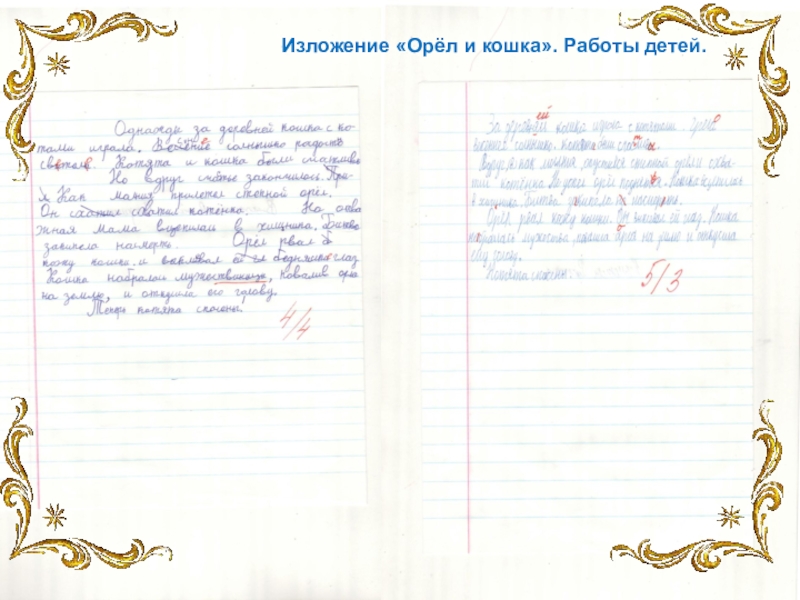 Изложение «Орёл и кошка». Работы детей.
Однажды за деревней кошка с ко-
тами играла. Весенние солнышко радостно
светело. Котята и кошка были счастливы
Но вдруг счастье закончилось. Пря-
Как молния пролетел степной орёл.
Он схватил котёнка. Но отва
жная мама вцепилась в хищника. Битва
закипела насмерть. Орёл рвал б
кожу кошки и выклевал ей беднажке глаз
Кошка набралась мужества, повалив орла
на землю, и откусила его голову.
Теперь котята спасены.
4/4
За деревней кошка играла с котятами. Грело
весеннее солнышко. Котята были счастливы
Вдруг, как молния, спустился степной орёл и схва
тил котёнка. Кошка вцепилась
в хищника. Битва закипела насмерть.
Орёл рвал кожу кошки. Он выклевал ей глаз. Кошка
набралась мужества повалила орла на землю и откусила
ему голову.
Котята спасены.
5/3